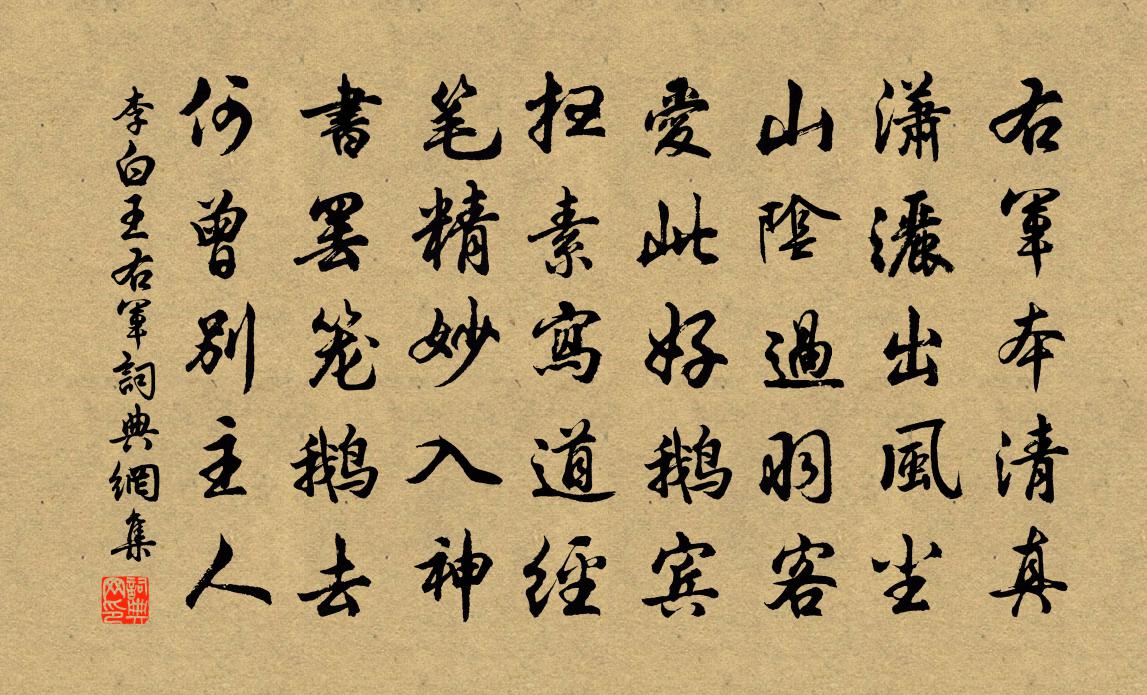 右軍本清真
瀟灑出風尘
山陰過羽客
愛此好鵝宾
扫素寫道經
笔精妙入神
書罢笼鵝去
何曾别主人
李白王右軍詞典網集
詞典
网印